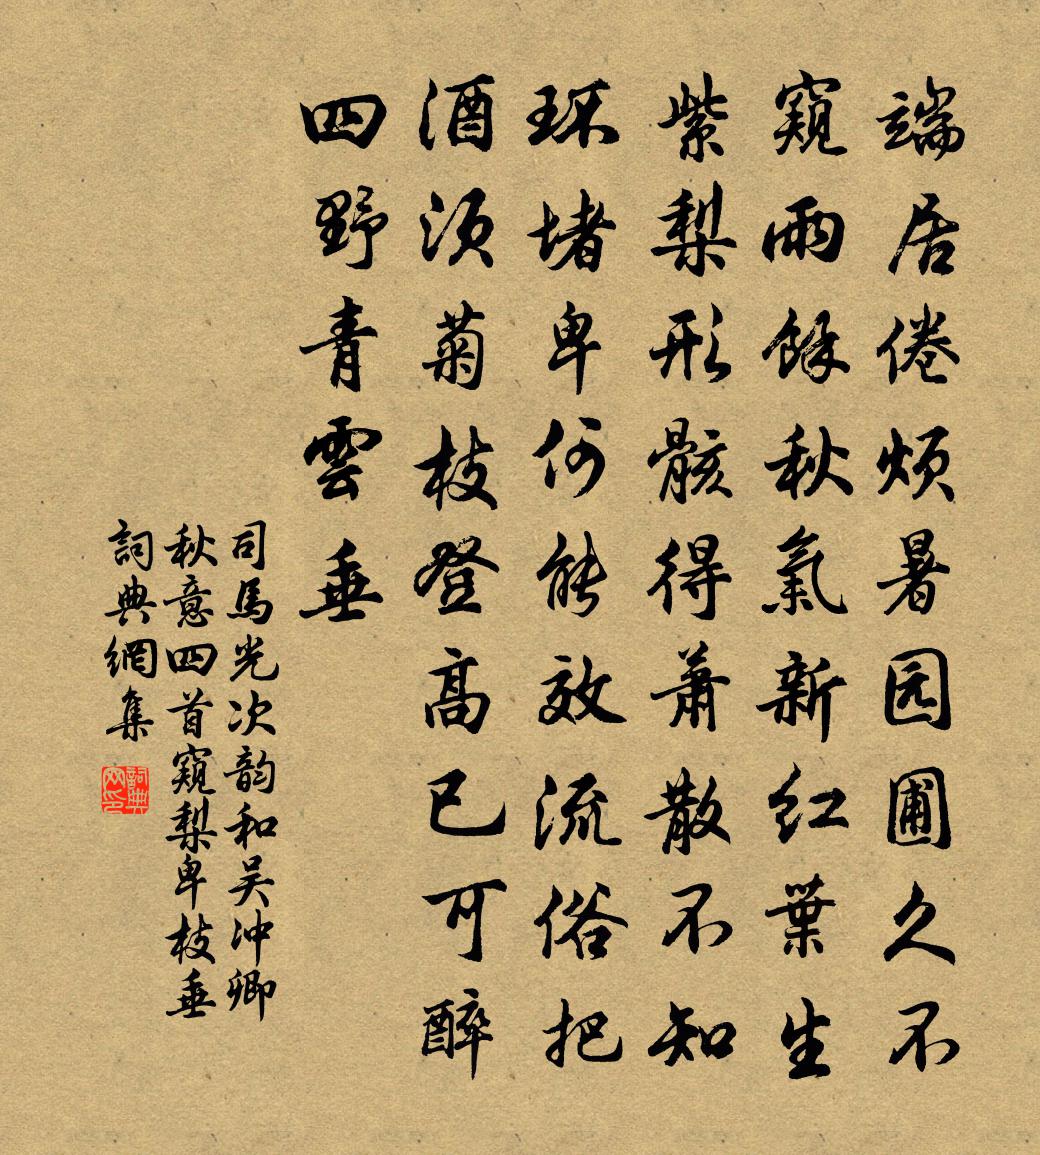 端居倦烦暑园圃久不
窺雨餘秋氣新红葉生
紫梨形骸得萧散不知
环堵卑何能效流俗把
酒须菊枝登高已可醉
四野青雲垂
司馬光次韵和吴冲卿
秋意四首窺梨卑枝垂
詞典網集
詞典网印